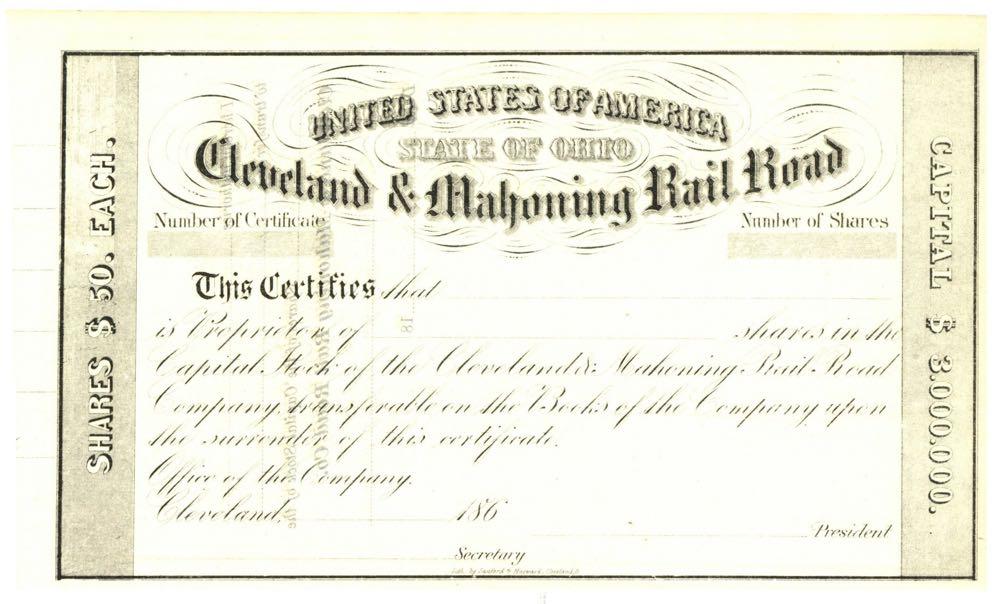 UNITED STATES OF AMERICA
STATE OF OHIO
Cleveland & Mahoning Rail Road
Number of Certificate
Number of Shares
SHARES $ 50. EACH.
CAPITAL $ 3.000.000.
This Certifies that
is Proprietor of shares in the
Capital Stock of the Cleveland & Mahoning Rail Road
Company, transferable on the Books of the Company upon
the surrender of this certificate.
Office of the Company.
Cleveland, 186
President
Secretary
Lith. by Sanford & Hayward, Cleveland, O.